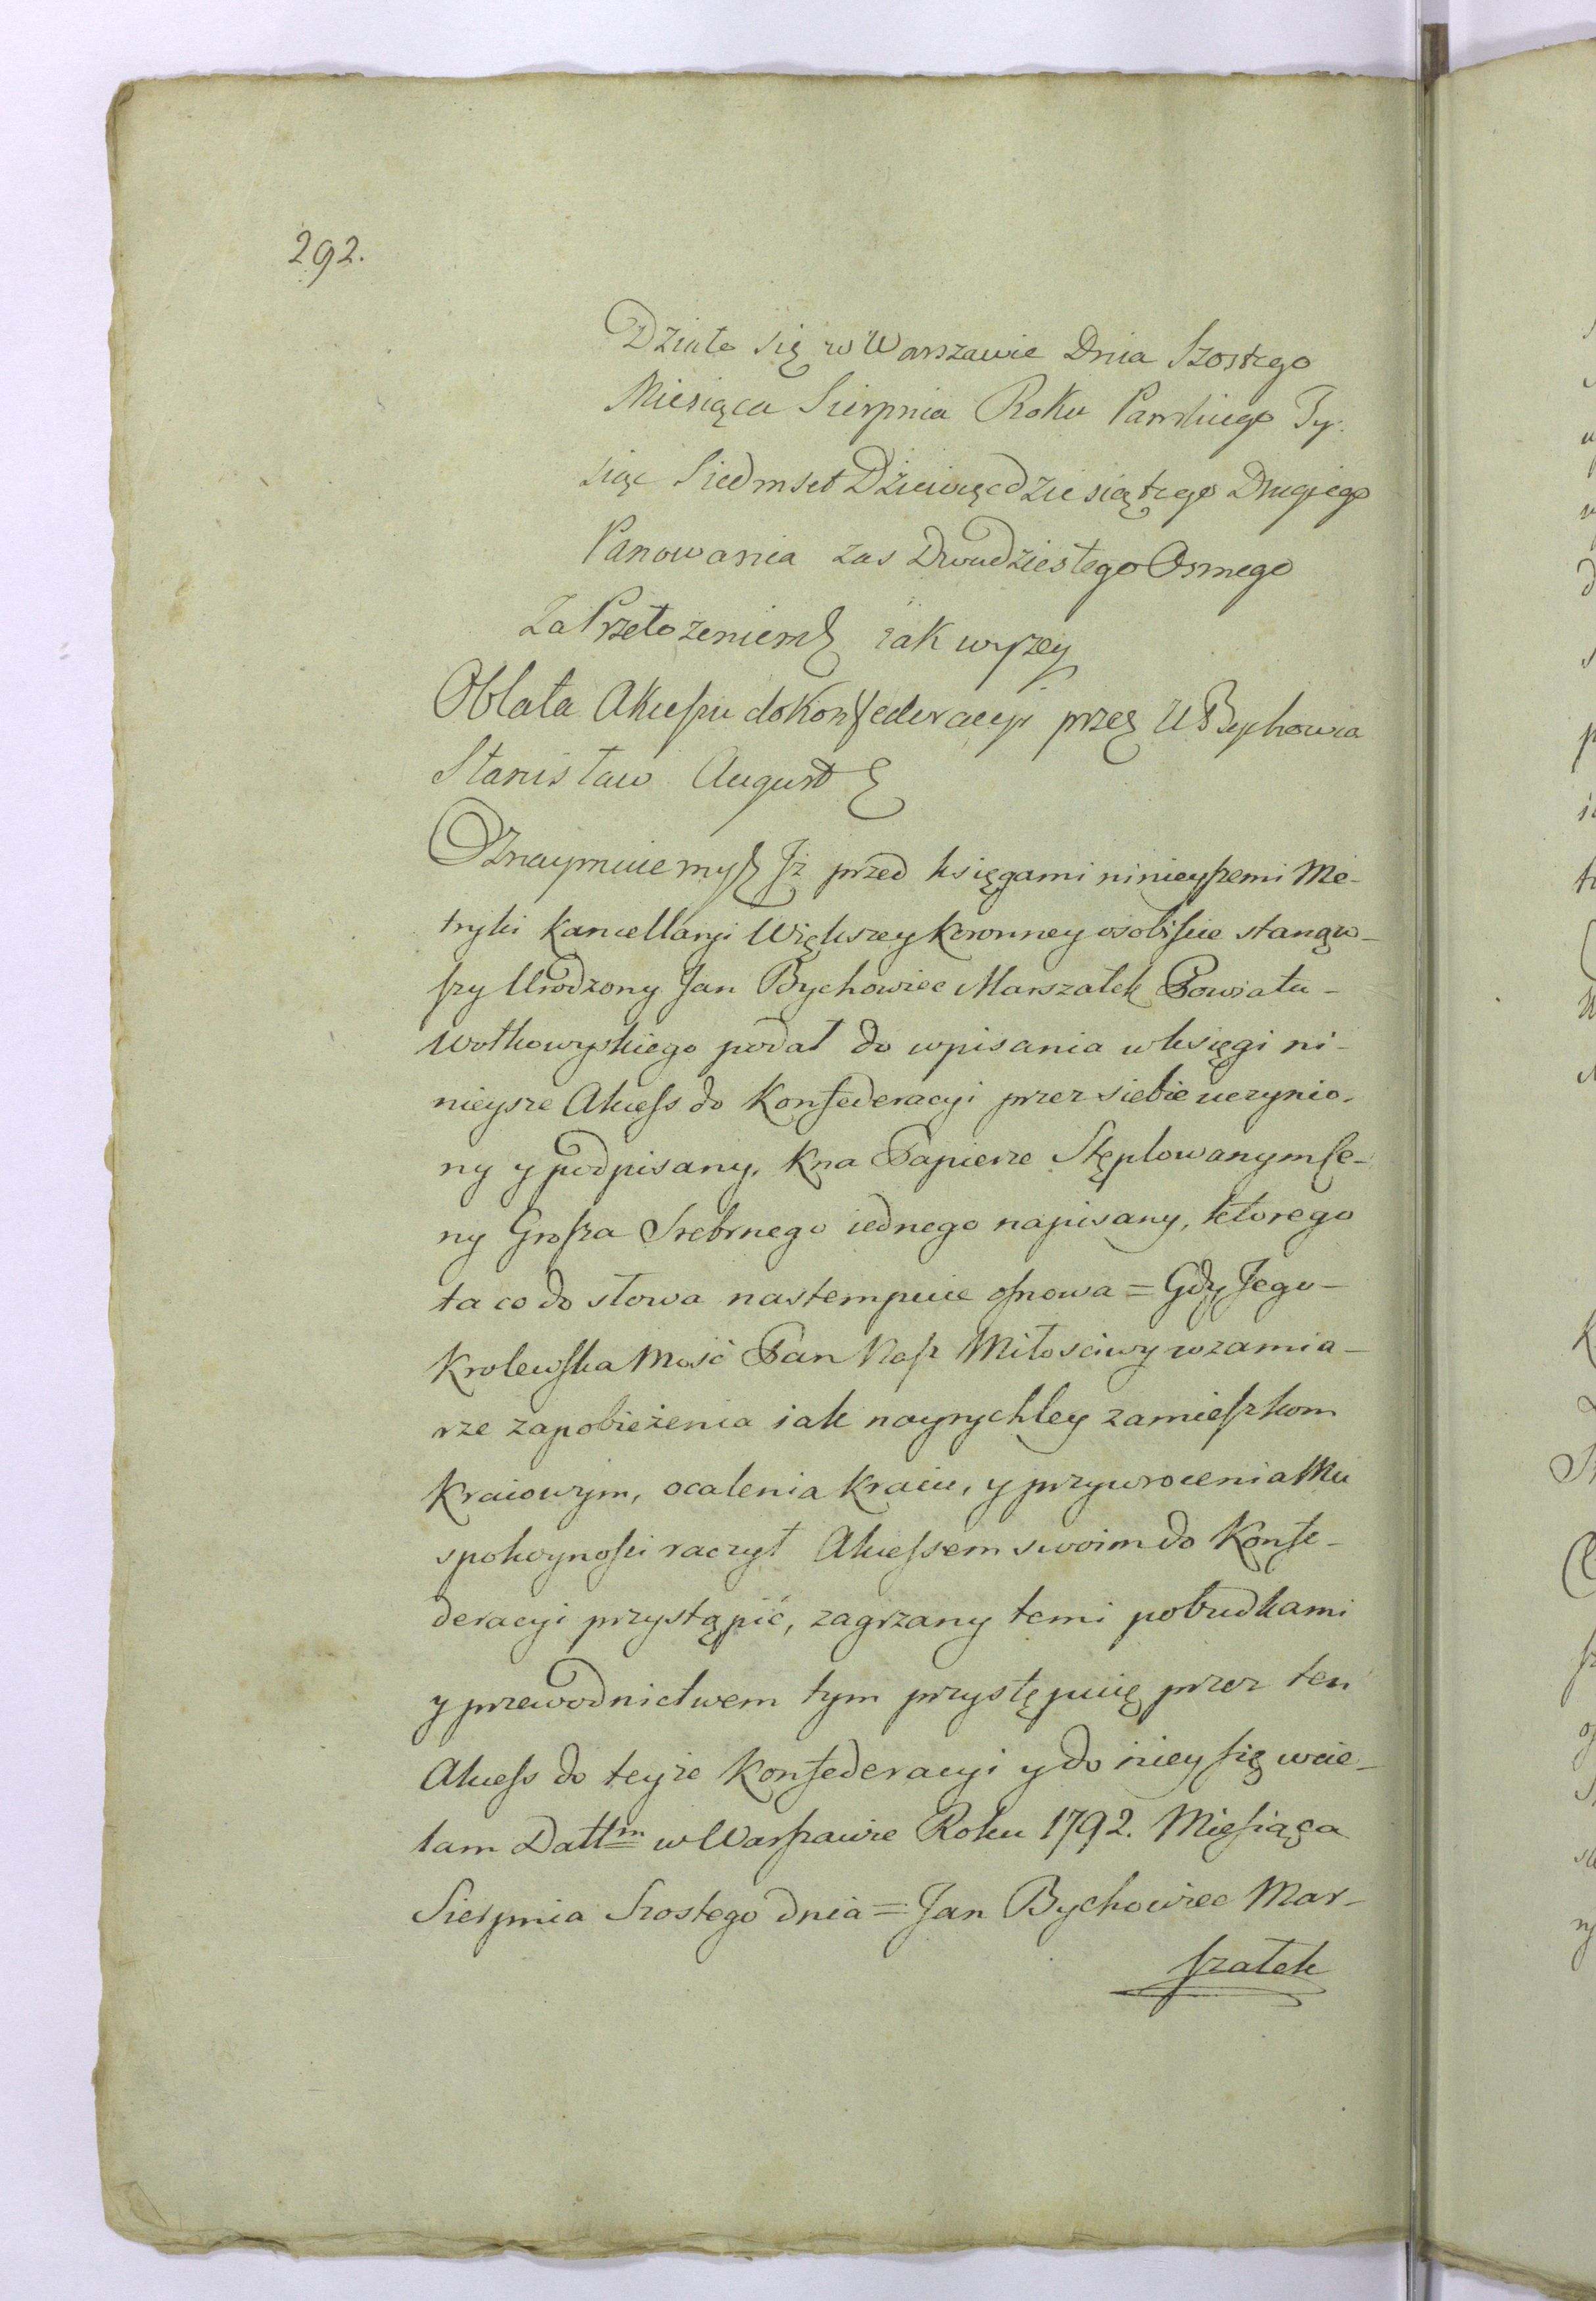 292.
Działo się w Warszawie Dnia Szostego
Miesiąca Sierpnia Roku Panskiego Ty-
siąc Siedmset Dziewięcdziesiątego Drugiego
Panowania zas Dwudziestego Osmego
Za Przełożeniem iak wyszey
Oblata Akcessu do Konfederacyi przez U Bychowca
Stanisław August
Oznaymuiemy Jż przed księgami ninieyszemi Me-
tryki Kancellaryi Większey Koronney osobiscie stanąw-
szy Urodzony Jan Bychowiec Marszałek Powiatu-
Wołkowyskiego podał do wpisania w księgi ni-
nieysze Akcess do Konfederacyi przez siebie uczynio-
ny y podpisany, na Papierze Stęplowanym Ce-
ny Grosza Srebrnego iednego napisany, ktorego
ta co do słowa nastempuie osnowa = Gdy Jego-
Krolewska Mosć Pan Nasz Miłosciwy w zamia-
rze zapobieżenia iak nayrychley zamieszkom
Kraiowym, ocalenia Kraiu, y przywrocenia Mu
spokoynosci raczył Akcessem swoim do Konfe-
deracyi przystąpić, zagrzany temi pobudkami
y przewodnictwem tym przystępuię przez ten
Akcess do teyże Konfederacyi y do niey się wcie-
lam Datt͟m w Warszawie Roku 1792. Miesiąca
Sierpnia Szostego dnia = Jan Bychowiec Mar-
szałek